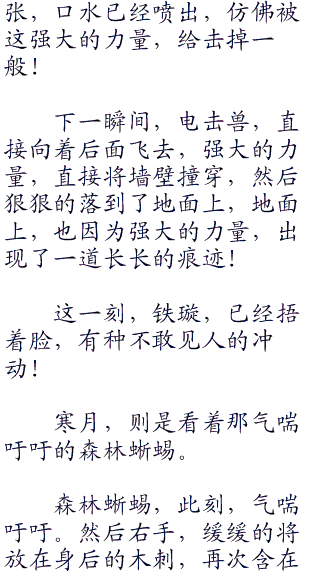 张，口水已经喷出，仿佛被
这强大的力量，给击掉一
般！
下一瞬间，电击兽，直
接向着后面飞去，强大的力
量，直接将墙壁撞穿，然后
狠狠的落到了地面上，地面
上，也因为强大的力量，出
现了一道长长的痕迹！
这一刻，铁璇，已经捂
着脸，有种不敢见人的冲
动！
寒月，则是看着那气喘
吁吁的森林蜥蜴。
森林蜥蜴，此刻，气喘
吁吁。然后右手，缓缓的将
放在身后的木刺，再次含在